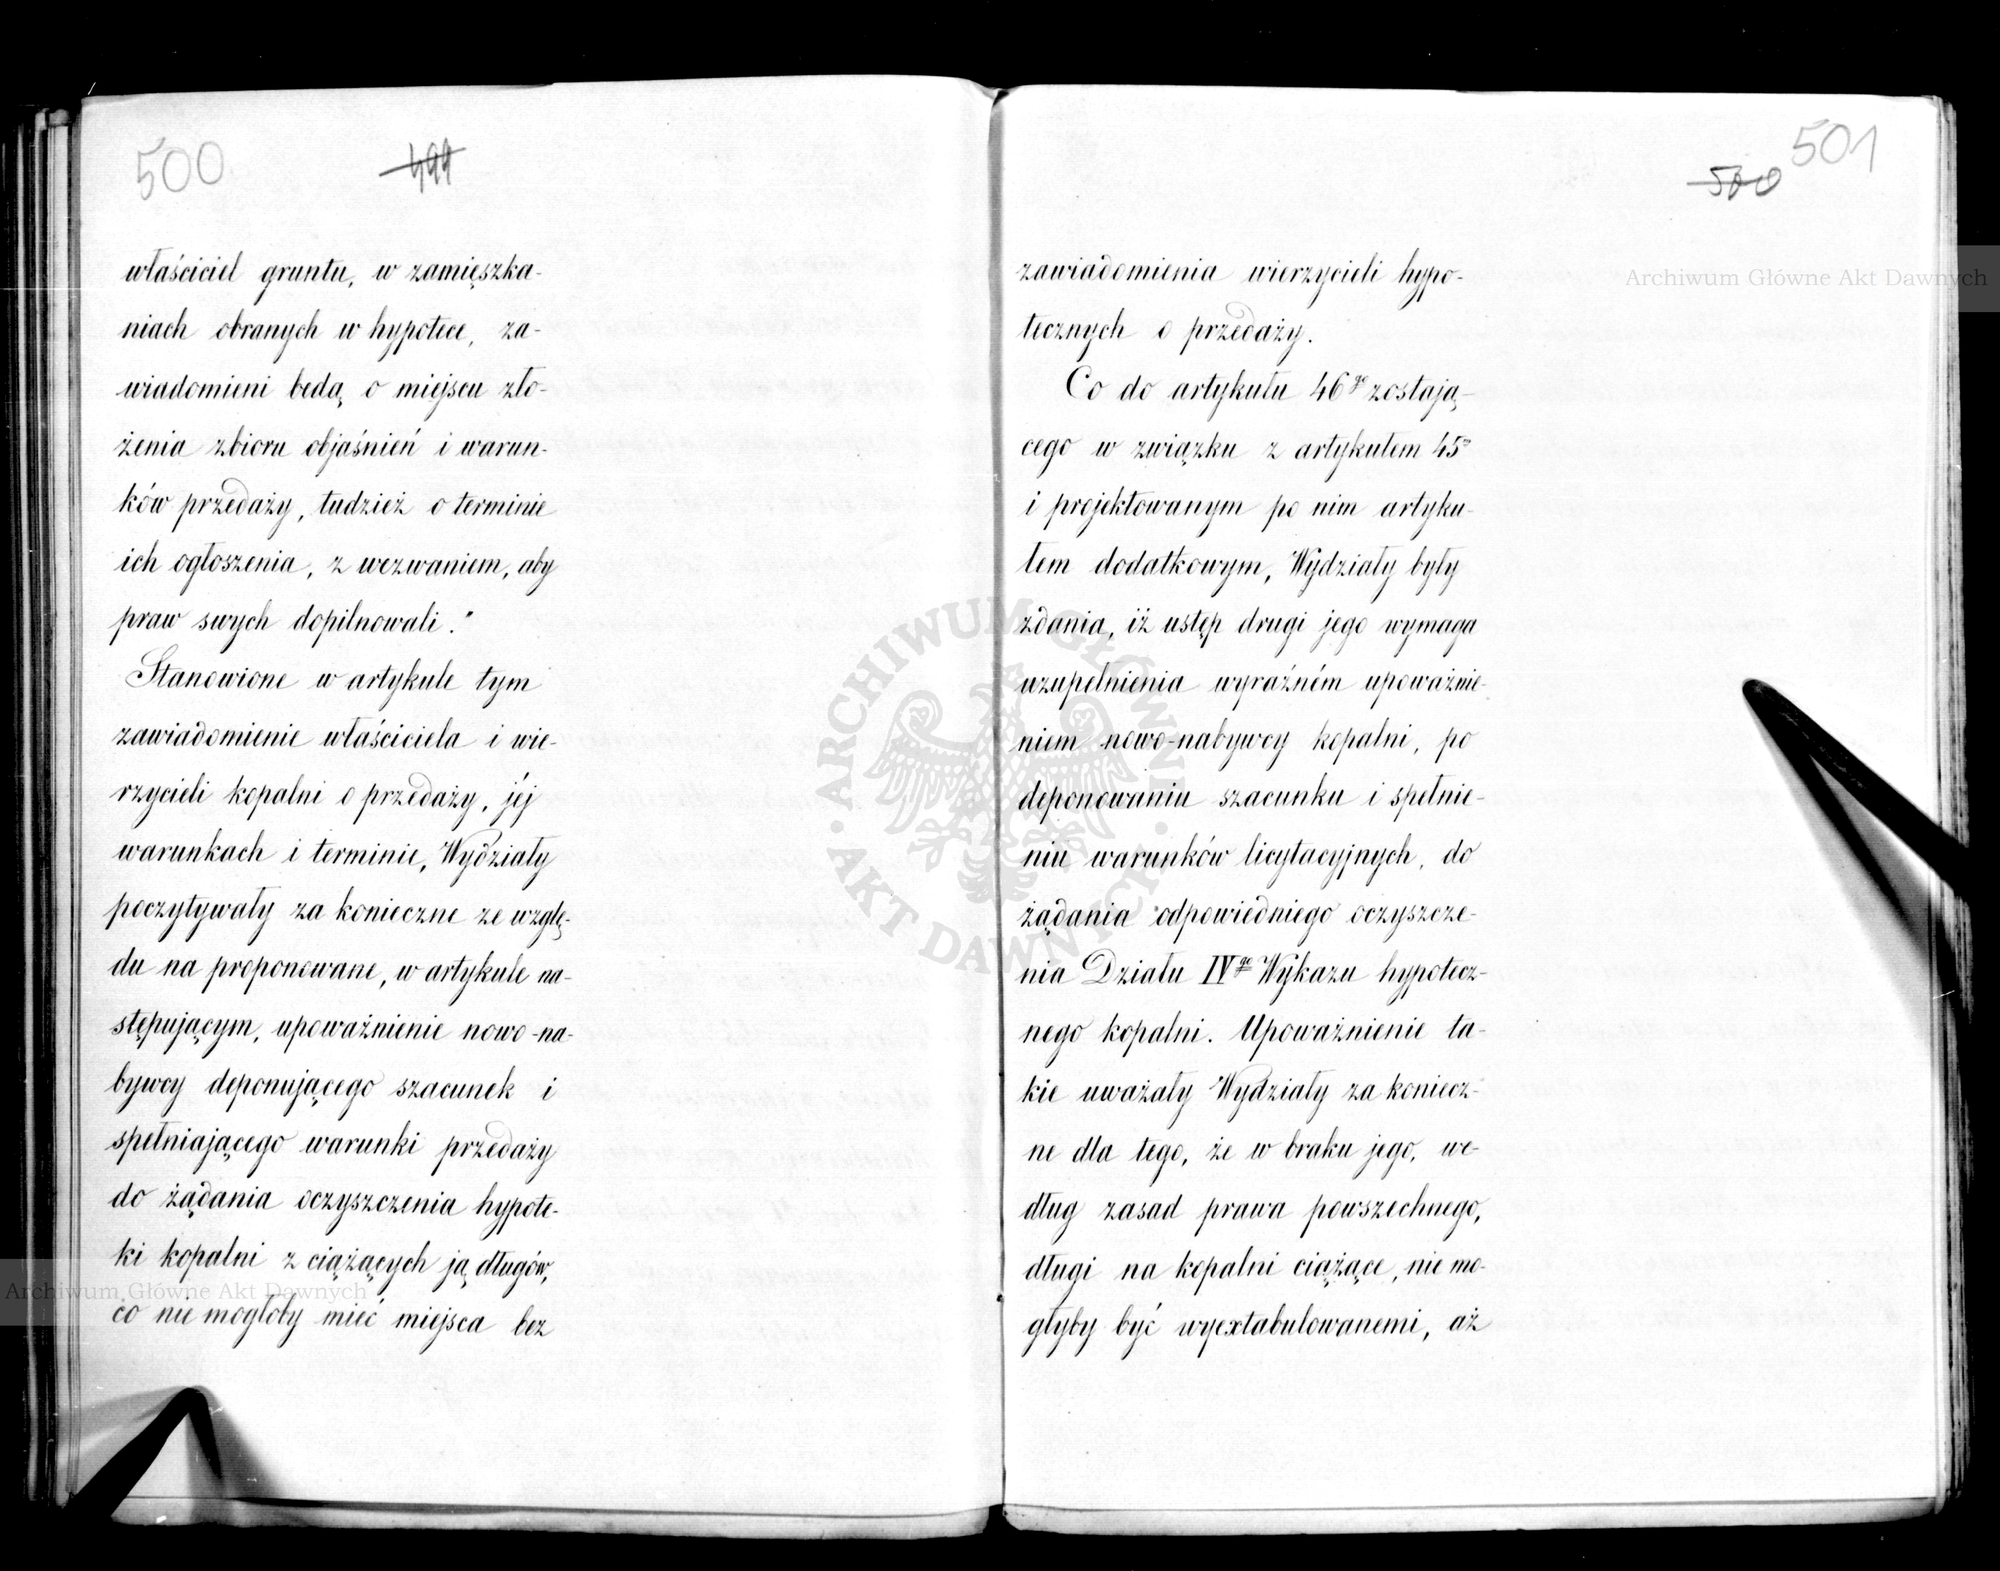 500
499
właściciel gruntu, w zamięszka-
niach obranych w hypotece, za-
wiadomieni będą o miejscu zło-
żenia zbioru objaśnień i warun-
ków przedaży, tudzież o terminie
ich ogłoszenia, z wezwaniem, aby
praw swych dopilnowali."
Stanowione w artykule tym
zawiadomienie właściciela i wie-
rzycieli kopalni o przedaży, jéj
warunkach i terminie, Wydziały
poczytywały za konieczne ze wzglę-
du na proponowane, w artykule na-
stępującym, upoważnienie nowo-na-
bywcy deponującego szacunek i
spełniającego warunki przedaży
do żądania oczyszczenia hypote-
ki kopalni z ciążących ją długów,
co nie mogłoby mieć miejsca bez
501
500
zawiadomienia wierzycieli hypo-
tecznych o przedaży.
Co do artykułu 46go zostają-
cego w związku z artykułem 45m
i projektowanym po nim artyku-
łem dodatkowym, Wydziały były
zdania, iż ustęp drugi jego wymaga
uzupełnienia wyraźném upoważnie-
niem nowo-nabywcy kopalni, po
deponowaniu szacunku i spełnie-
niu warunków licytacyjnych, do
żądania odpowiedniego oczyszcze-
nia Działu IVgo Wykazu hypotecz-
nego kopalni. Upoważnienie ta-
kie uważały Wydziały za koniecz-
ne dla tego, że w braku jego, we-
dług zasad prawa powszechnego,
długi na kopalni ciążące, nie mo-
głyby być wyextabulowanemi, aż
Archiwum Główne Akt Dawnych
Archiwum Główne Akt Dawnych
ARCHIWUM GŁÓWNE · AKT DAWNYCH ·